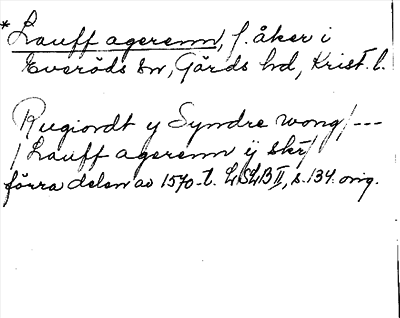 *Lauff agerenn, f. åker i
Everöds sn, Gärds hd, Krist. l.
Rugiordt y Syndre wong/---
/Lauff agerenn ij skr/
förra delen av 1570-t. LSLB II, s. 134. orig.